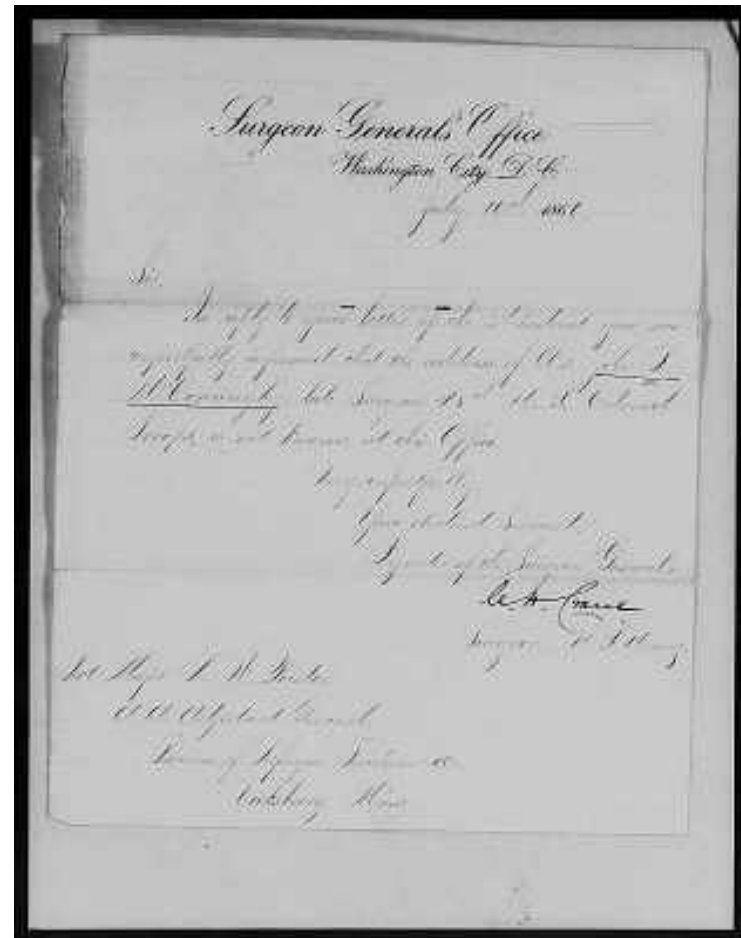 Surgeon General's Office
Washington City, D. C.
July 11th 186
Sir,
In reply to your letter of the instant you are
respectfully informed that the address of
late Surgeon Colored
Troops is not known at this Office
Very respectfully
Your obedient servant
By order of the Surgeon General
C. H. Crane
Surgeon U. S. Army
Bvt Major
A. A. Adjutant General
Bureau of Refugees Freedmen &c
Vicksburg Miss